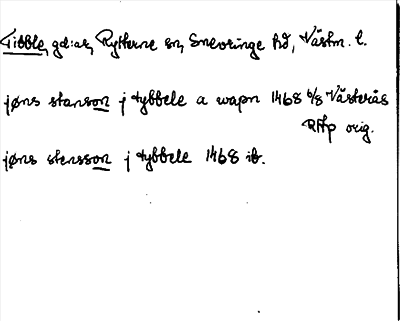 Tibble, gd:ar, Rytterne sn, Snevringe hd, Västm. l.
jøns stanson j tybbele a wapn 1468 6/8 Västerås
RAp orig.
jøns stensson j tybbele 1468 ib.